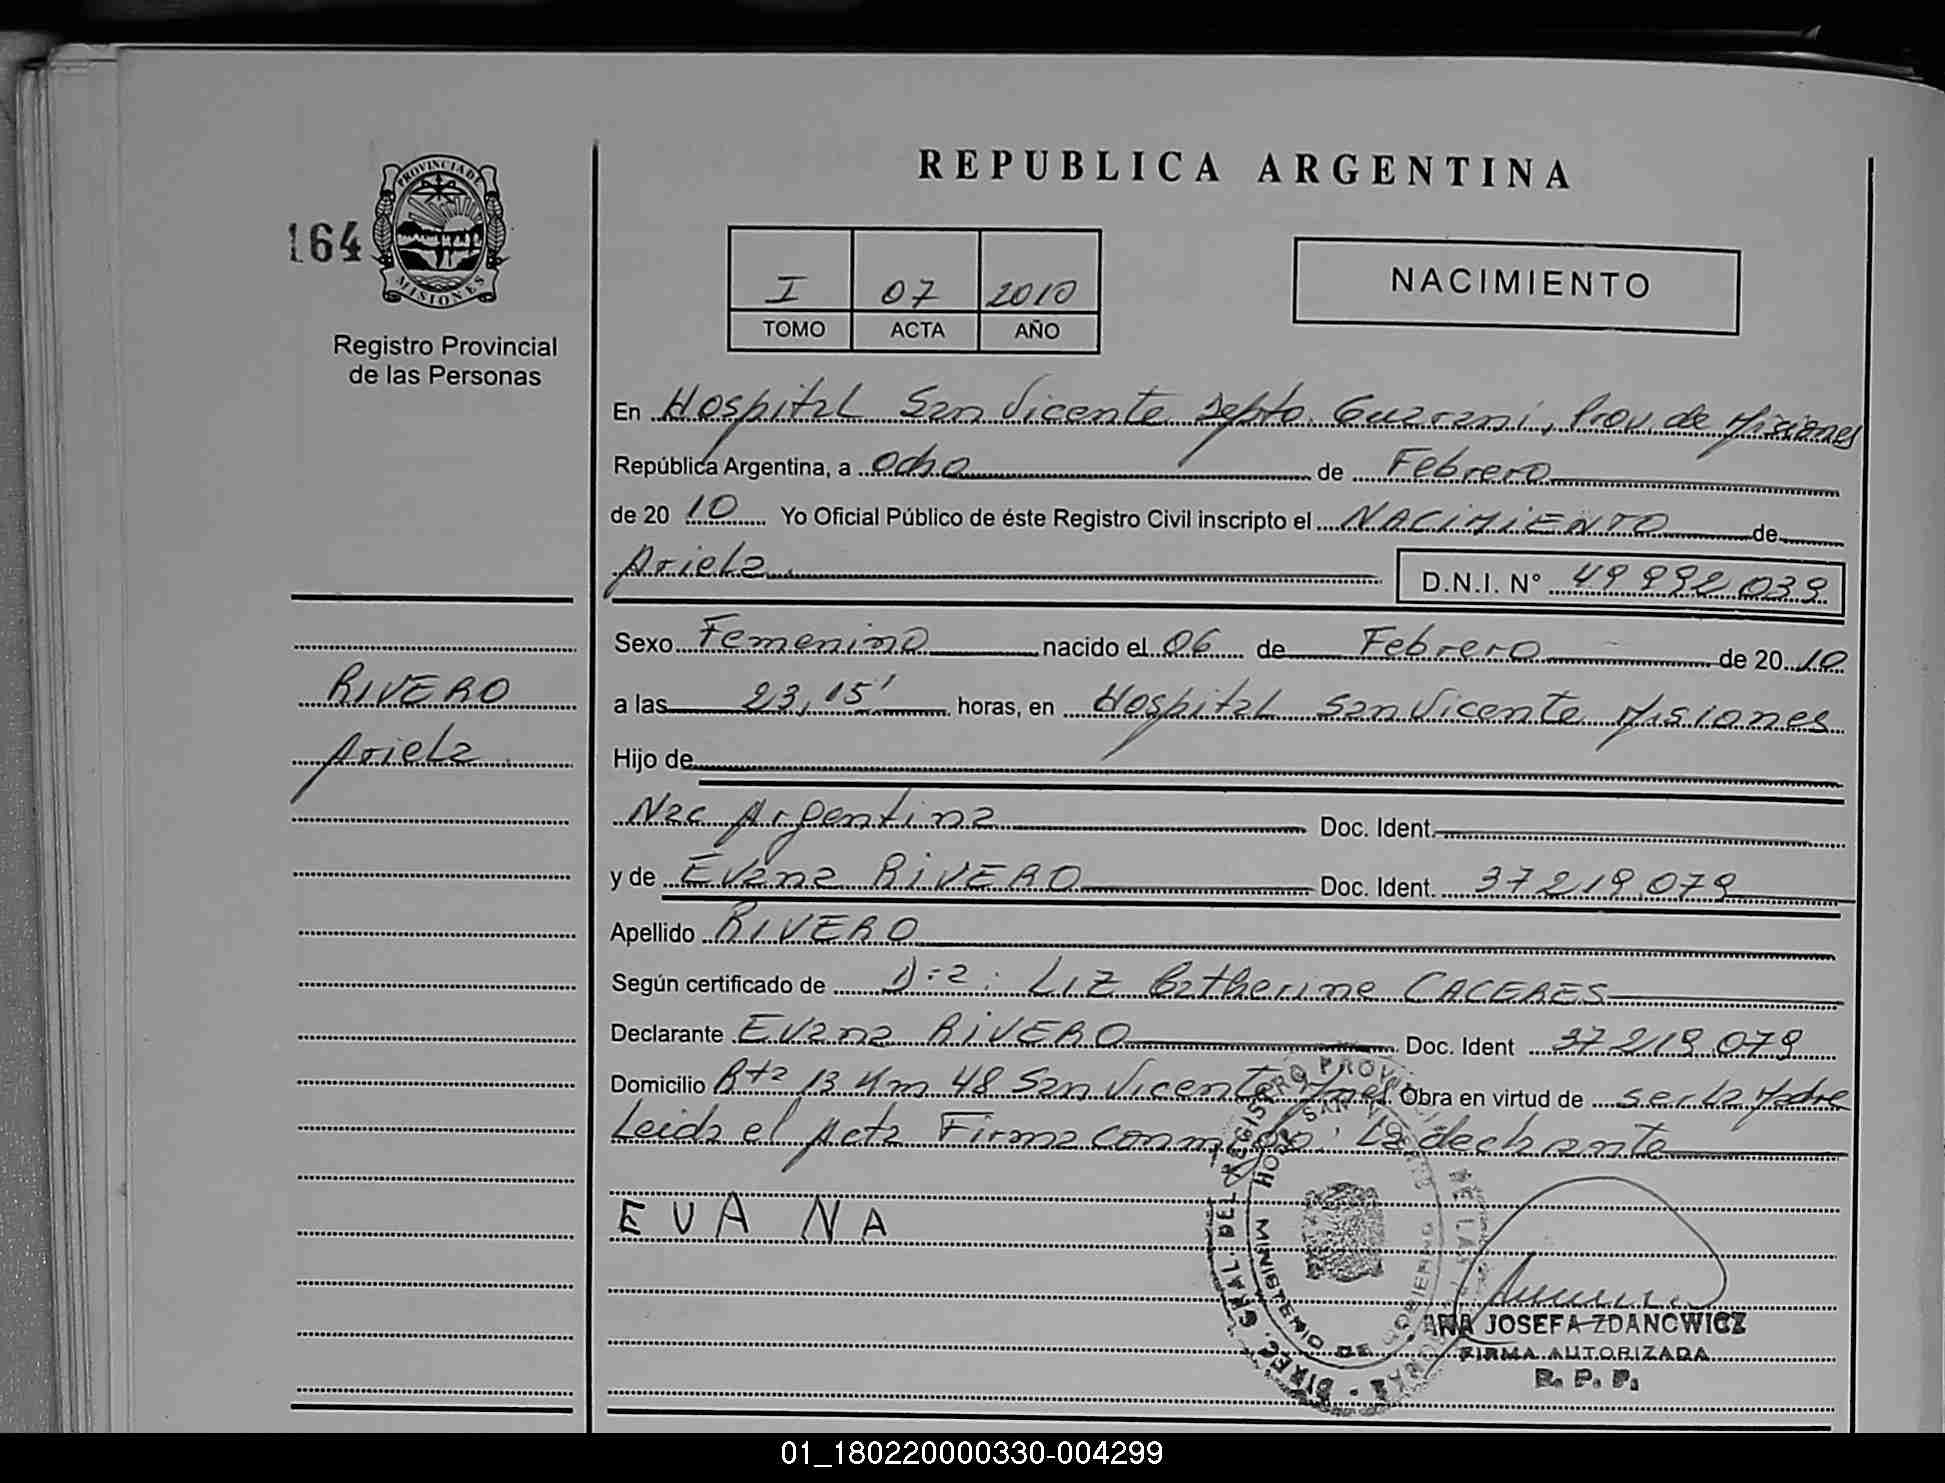 REPUBLICA ARGENTINA
164
PROVINCIA DE
MISIONES
Registro Provincial
de las Personas
I 07 2010
TOMO ACTA AÑO
NACIMIENTO
En Hospital San Vicente Depto. Guarani, Prov. de Misiones
República Argentina, a ocho de Febrero
de 20 10 Yo Oficial Público de éste Registro Civil inscripto el NACIMIENTO de
Ariela D.N.I. N° 49 992 039
Sexo Femenino nacido el 06 de Febrero de 20 10
RIVERO
Ariela
a las 23,15' horas, en Hospital San Vicente Misiones
Hijo de
Nac Argentina Doc. Ident.
y de Evana RIVERO Doc. Ident. 37 219.079
Apellido RIVERO
Según certificado de D:a: Liz Catherine CACERES
Declarante Evana RIVERO Doc. Ident 37 219 079
Domicilio Rta 13 Km 48 San Vicente Mnes. Obra en virtud de ser La Madre
Leida el Acta Firma conmigo: La declarante
EVANA
DIREC. GRAL. DEL REGISTRO PROV DE LAS
MINISTERIO DE GOBIERNO
ANA JOSEFA ZDANOWICZ
FIRMA AUTORIZADA
R. P. P.
01_180220000330-004299